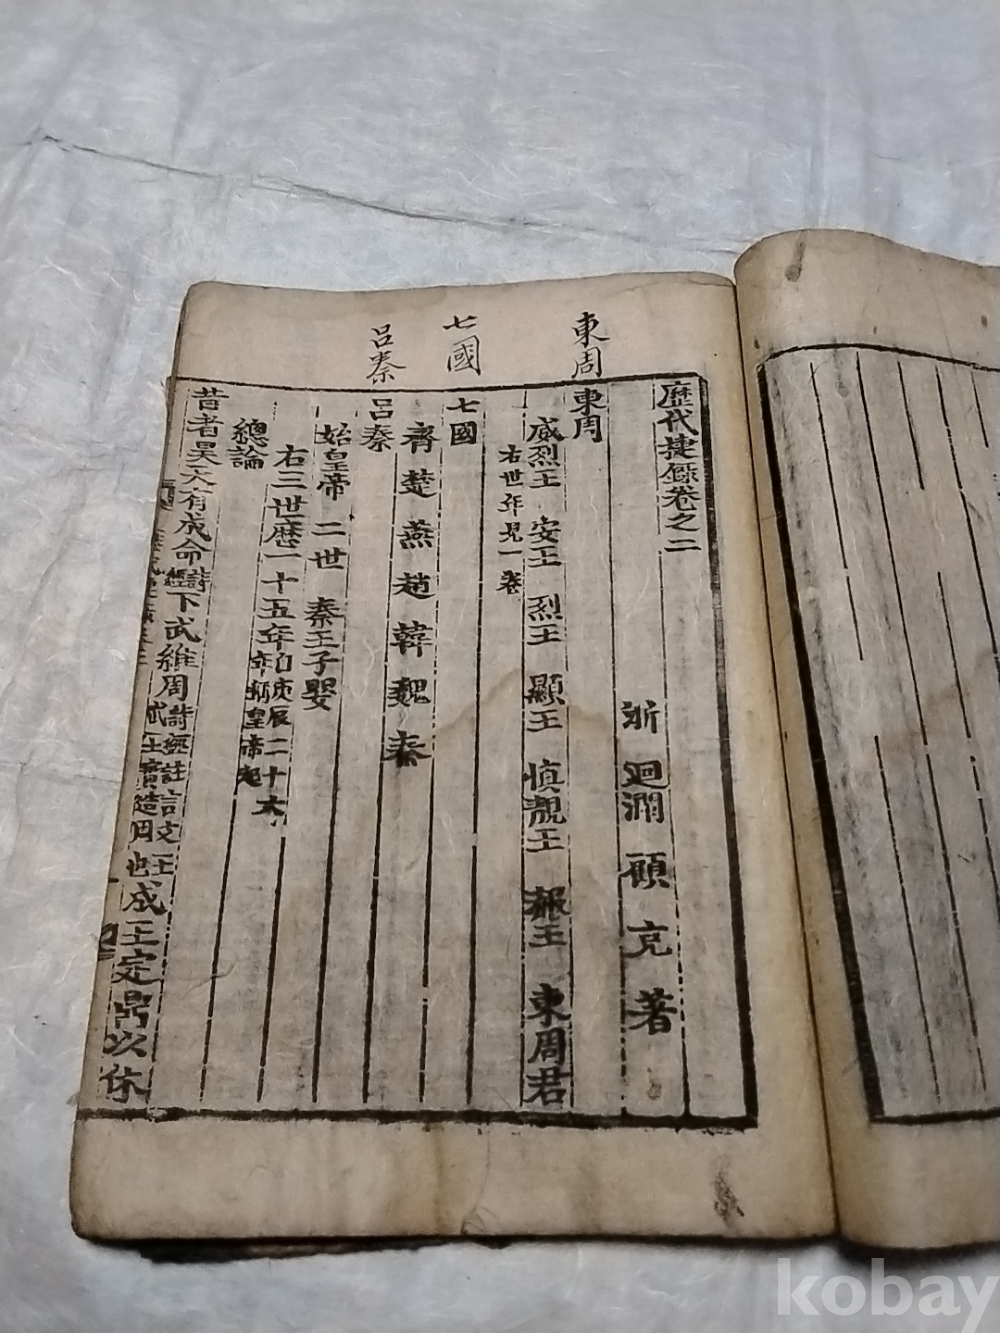 東周
七國
呂秦
歷代捷錄卷之二
浙 迴瀾 顧充 著
東周
威烈王 安王 烈王 顯王 慎靚王 赧王 東周君
右世年見一卷
七國
齊 楚 燕 趙 韓 魏 秦
呂秦
始皇帝 二世 秦王子嬰
右三世歷一十五年始庚辰二十六年始皇帝起
總論
昔者昊天有成命詩經下武維周詩經註言文王武王實造周也成王定鼎以休
kobay